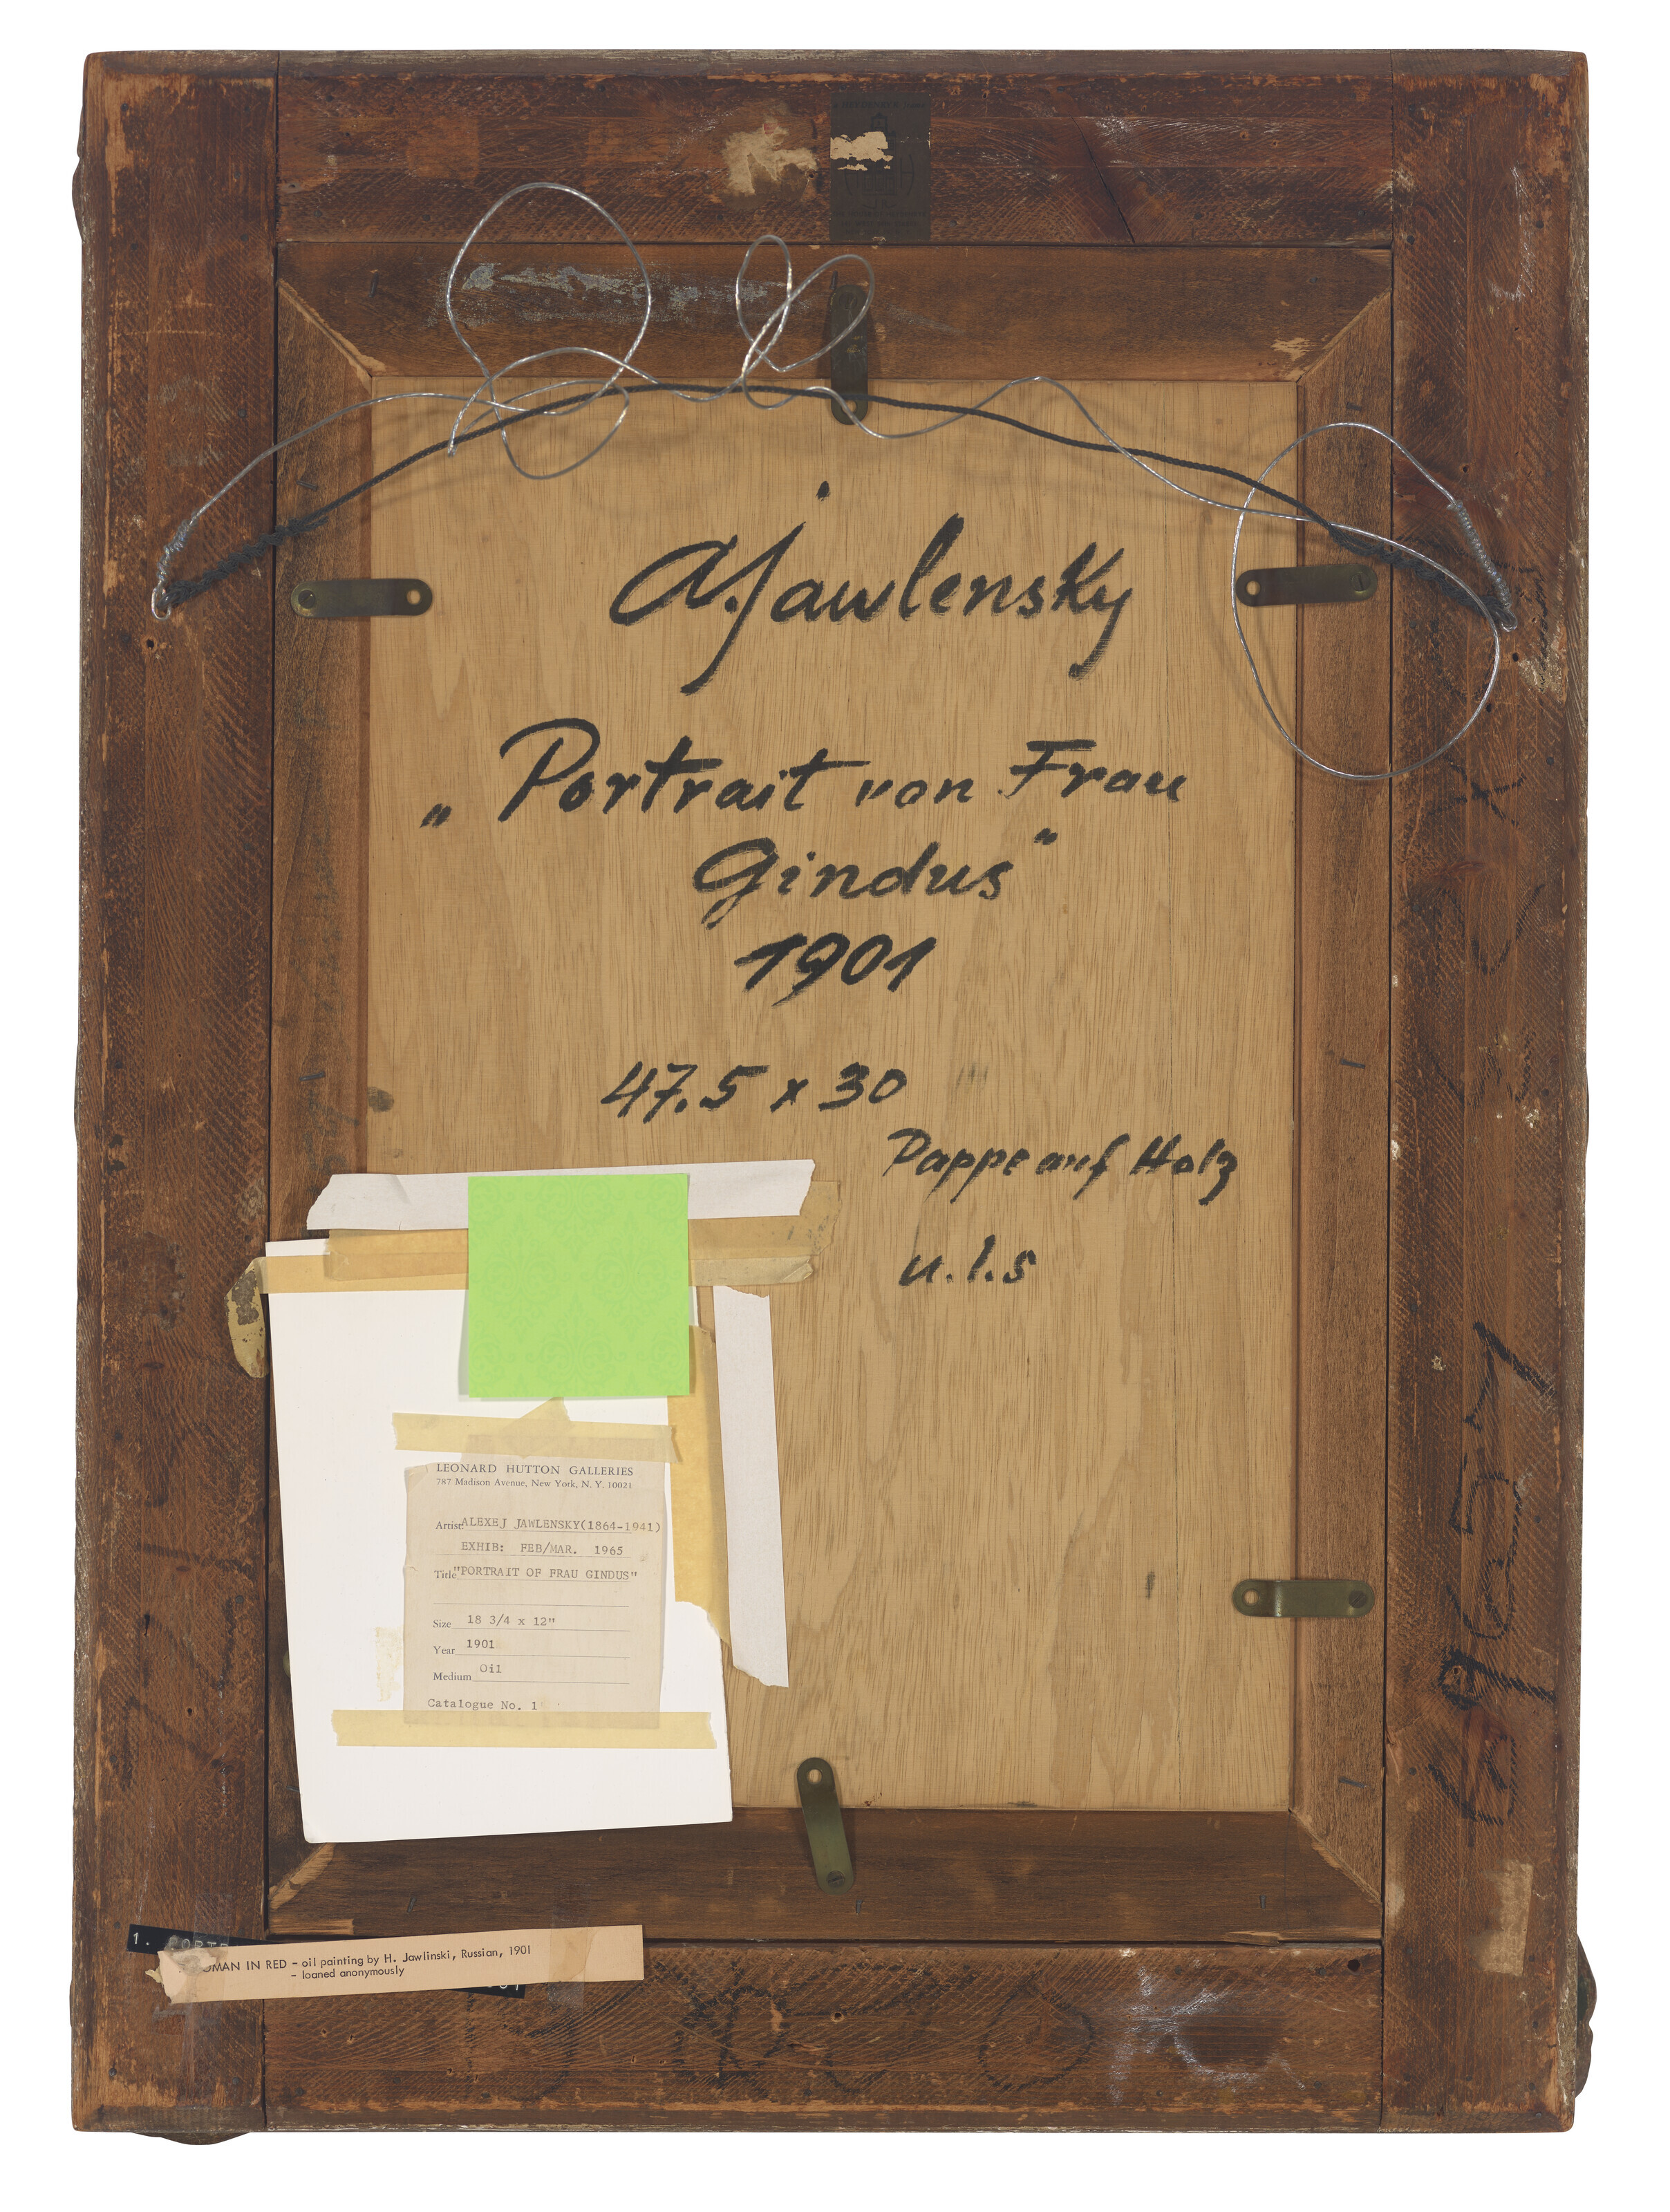 A. Jawlensky
„Portrait von Frau
Gindus"
1901
47.5 x 30
Pappe auf Holz
u.l.s
LEONARD HUTTON GALLERIES
787 Madison Avenue, New York, N. Y. 10021
Artist ALEXEJ JAWLENSKY(1864-1941)
EXHIB: FEB/MAR. 1965
Title "PORTRAIT OF FRAU GINDUS"
Size 18 3/4 x 12"
Year 1901
Medium Oil
Catalogue No. 1
1.
IN RED - oil painting by H. Jawlinski, Russian, 1901
- loaned anonymously